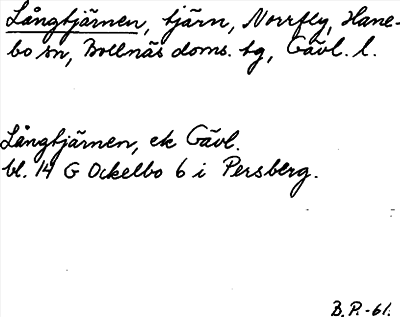 Långtjärnen, tjärn, Norrfly, Hane-
bo sn, Bollnäs doms. tg, Gävl. l.
Långtjärnen, ek Gävl.
bl. 14 G Ockelbo 6 i Persberg.
B.P.-61.